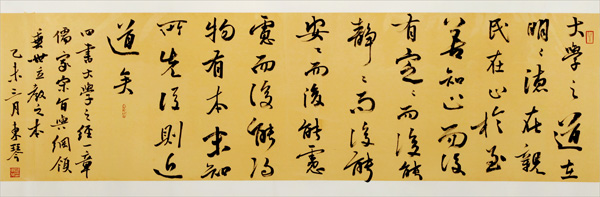 大學之道在
明〻德在親
民在止於至
善知止而後
有定〻而後能
靜〻而後能
安〻而後能慮
慮而後能得
物有本末知
所先後則近
道矣
四書大學之經一章
儒家宗旨與綱領
垂世立教之本
乙未三月東琴